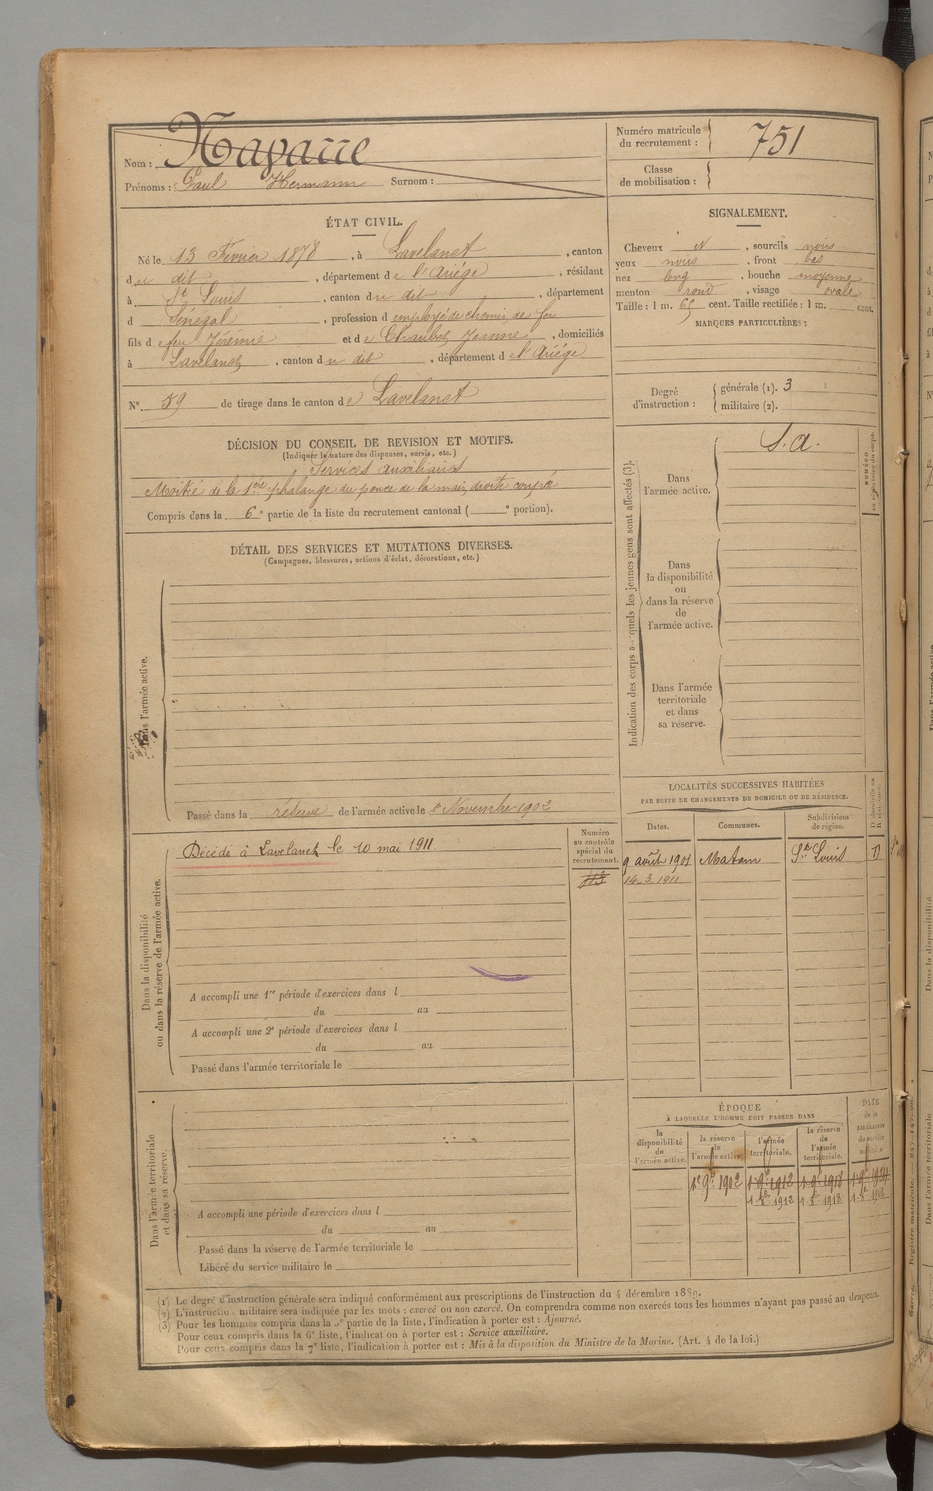 Nom : Nayarre
Prénoms : Paul Hermann Surnom :
Numéro matricule du recrutement : 751
Classe de mobilisation :
ÉTAT CIVIL.
Né le 13 Février 1878, à Lavelanet, canton
du dit, département de l'Ariége, résidant
à St Louis, canton du dit, département
d Sénégal, profession d'employé de chemin de fer
fils de feu Jérémie et de Chaubet Jeanne, domiciliés
à Lavelanet, canton du dit, département de l'Ariége
N° 59 de tirage dans le canton de Lavelanet
SIGNALEMENT.
Cheveux et, sourcils noirs
yeux noirs, front bas
nez long, bouche moyenne
menton rond, visage ovale
Taille : 1 m. 65 cent. Taille rectifiée : 1 m. cent.
MARQUES PARTICULIÈRES :
Degré d'instruction : générale (1). 3
militaire (2).
DÉCISION DU CONSEIL DE REVISION ET MOTIFS.
(Indiquer la nature des dispenses, sursis, etc.)
Services auxiliaires
Moitié de la 1ère phalange du pouce de la main droite coupée
Compris dans la 6e partie de la liste du recrutement cantonal ( e portion).
DÉTAIL DES SERVICES ET MUTATIONS DIVERSES.
(Campagnes, blessures, actions d'éclat, décorations, etc.)
Dans l'armée active.
Passé dans la réserve de l'armée active le 1er Novembre 1902
Indication des corps auxquels les jeunes gens sont affectés (3).
Dans l'armée active.
S. A.
Dans la disponibilité ou dans la réserve de l'armée active.
Dans l'armée territoriale et dans sa réserve.
Dans la disponibilité ou dans la réserve de l'armée active.
Décédé à Lavelanet le 10 mai 1911.
Numéro au contrôle spécial du recrutement.
A accompli une 1re période d'exercices dans l
du au
A accompli une 2e période d'exercices dans l
du au
Passé dans l'armée territoriale le
LOCALITÉS SUCCESSIVES HABITÉES
PAR SUITE DE CHANGEMENTS DE DOMICILE OU DE RÉSIDENCE.
Dates. Communes. Subdivisions de région.
9 août 1901 Matam St Louis D
14. 3. 1911
Dans l'armée territoriale et dans sa réserve.
A accompli une période d'exercices dans l
du au
Passé dans la réserve de l'armée territoriale le
Libéré du service militaire le
ÉPOQUE
À LAQUELLE L'HOMME DOIT PASSER DANS
la disponibilité de l'armée active.
la réserve de l'armée active.
l'armée territoriale.
la réserve de l'armée territoriale.
(1) Le degré d'instruction générale sera indiqué conformément aux prescriptions de l'instruction du 4 décembre 1889.
(2) L'instruction militaire sera indiquée par les mots : exercé ou non exercé. On comprendra comme non exercés tous les hommes n'ayant pas passé au drapeau.
(3) Pour les hommes compris dans la 5e partie de la liste, l'indication à porter est : Ajourné.
Pour ceux compris dans la 6e liste, l'indication à porter est : Service auxiliaire.
Pour ceux compris dans la 7e liste, l'indication à porter est : Mis à la disposition du Ministre de la Marine. (Art. 4 de la loi.)